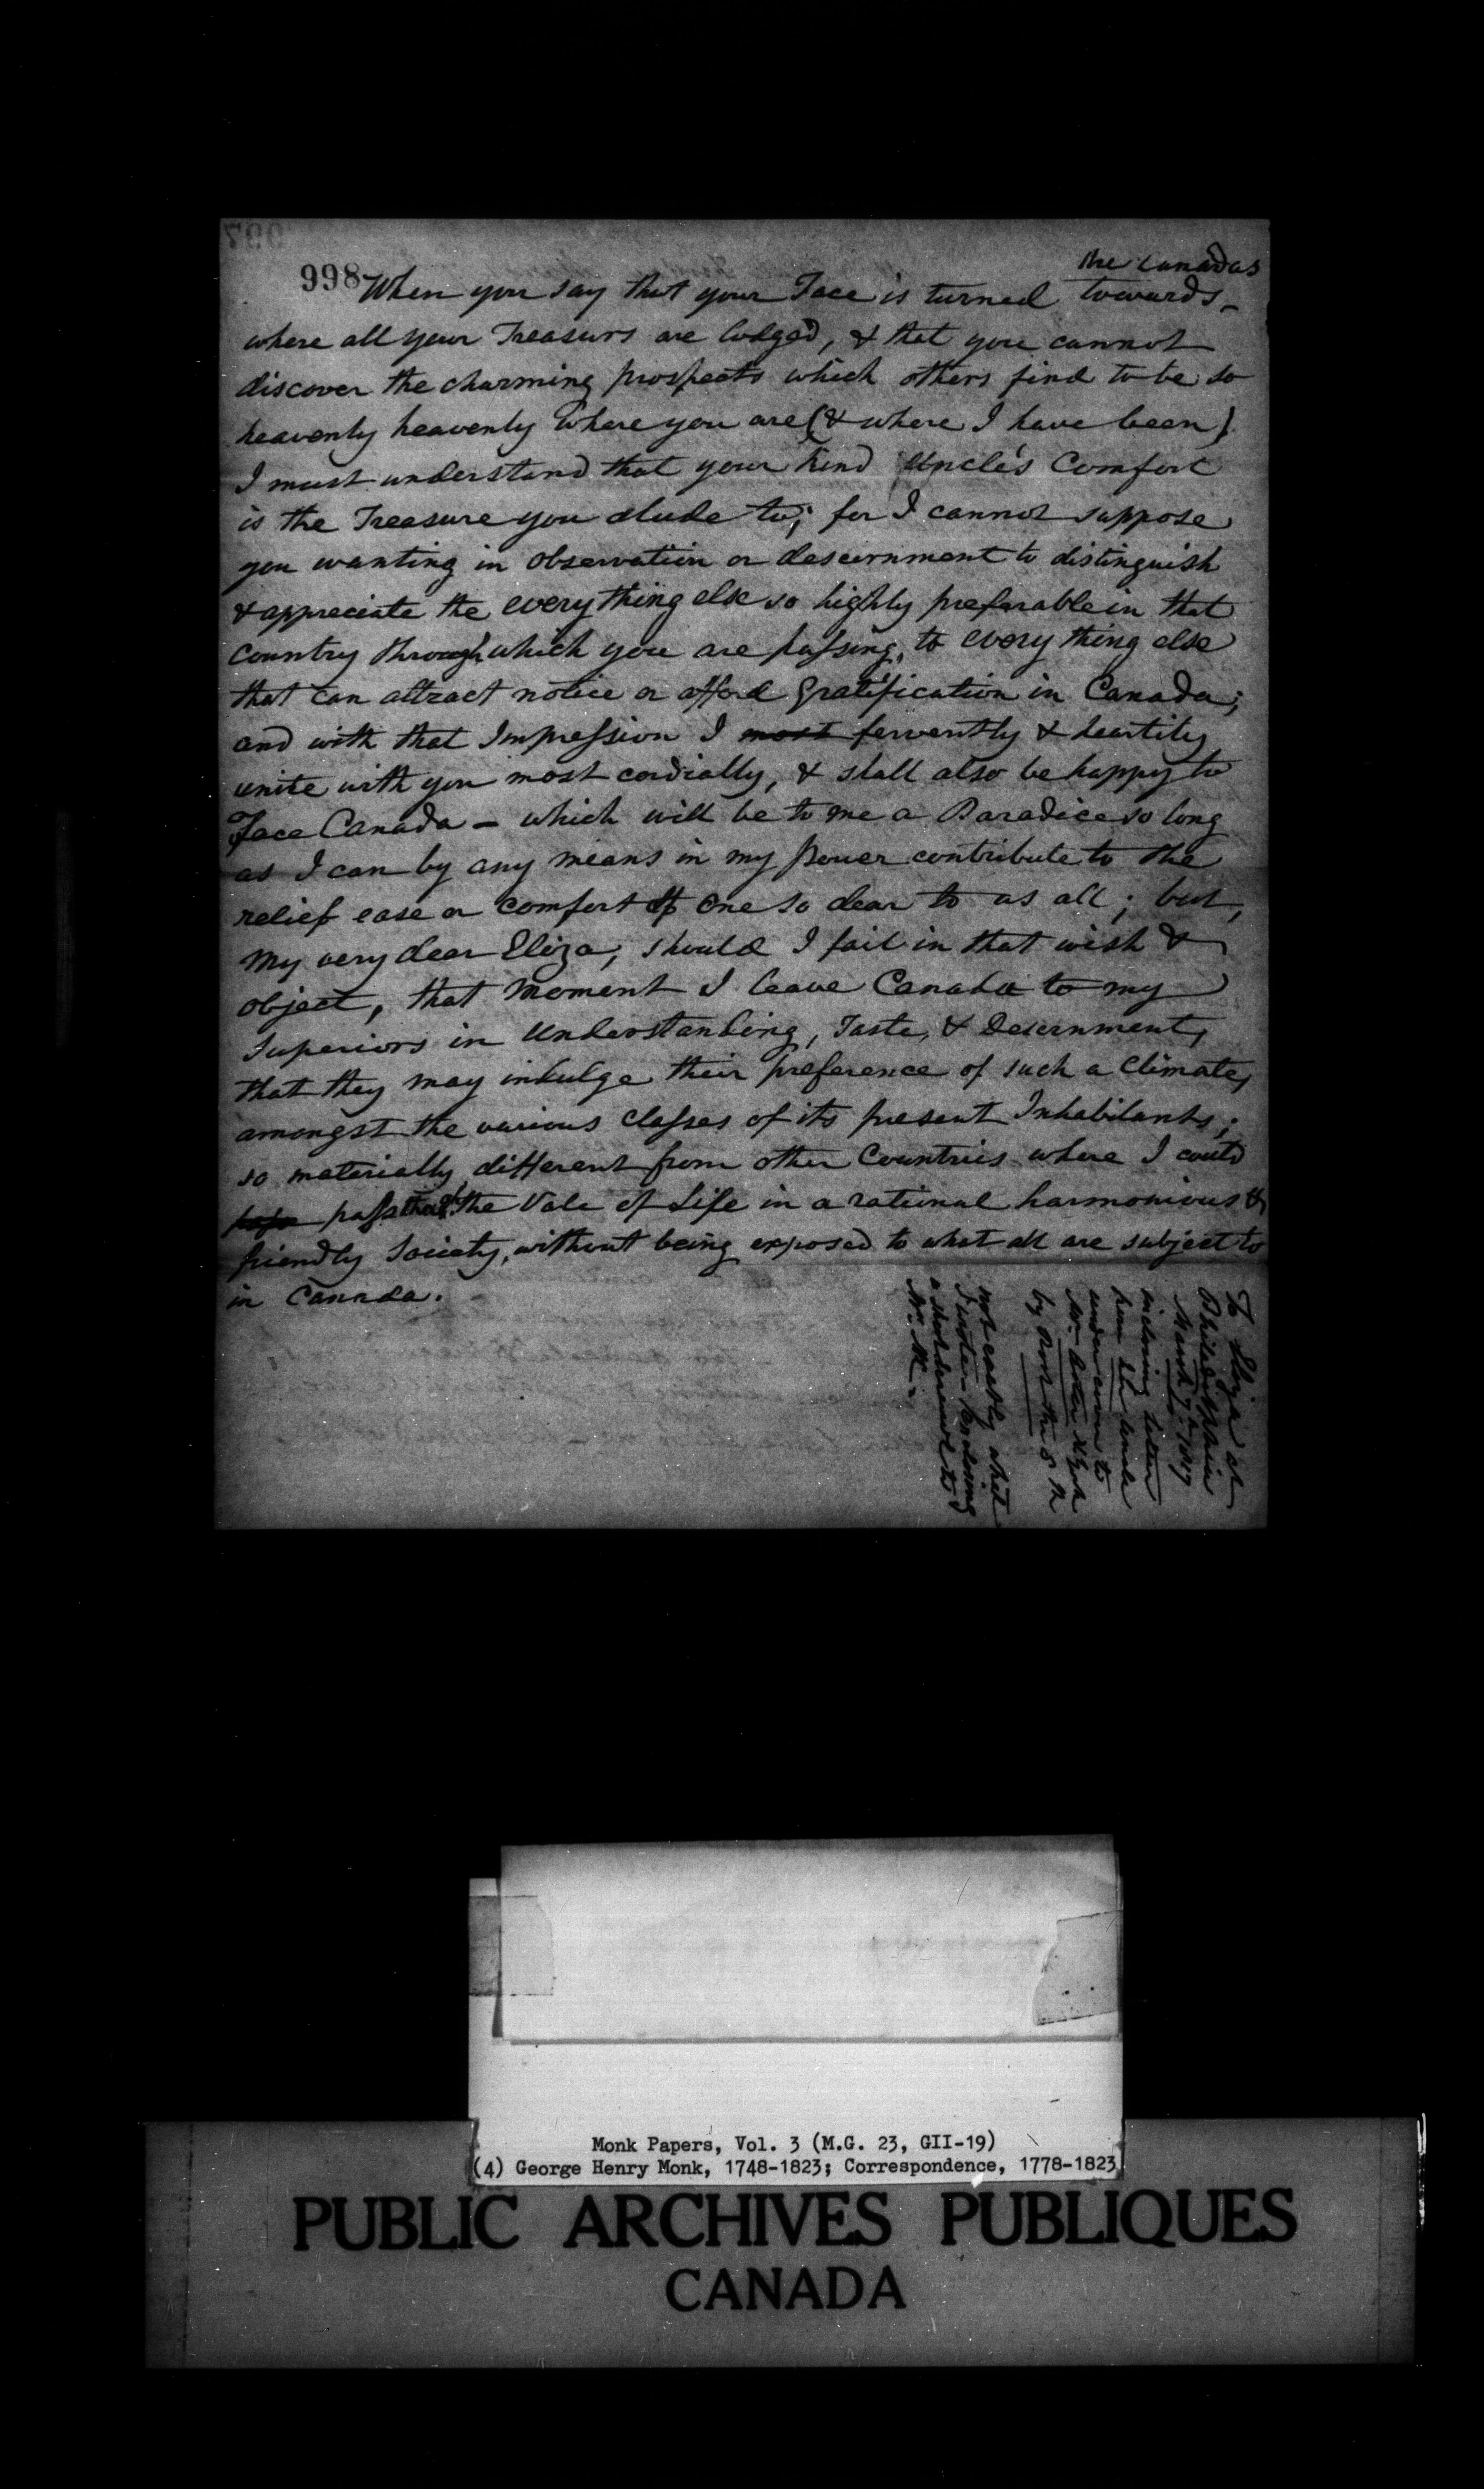 998
the Canadas
When you say that your Face is turned towards -
where all your Treasurs are lodged, & that you cannot
discover the charming prospects which others find to be so
heavenly heavenly where you are (& where I have been)
I must understand that your kind Uncle's Comfort
is the Treasure you alude to; for I cannot suppose
you wanting in observation or descernment to distinguish
& appreciate the everything else so highly preferable in that
country through which you are passing, to every thing else
that can attract notice or afford gratification in Canada;
and with that Impression I most fervently & heartily
unite with you most cordially, & shall also be happy to
Face Canada - which will be to me a Paradice so long
as I can by any means in my power contribute to the
relief ease or comfort of one so dear to us all; but,
my very dear Eliza, should I fail in that wish &
object, that moment I leave Canada to my
Superiors in Understanding, Taste, & Desernment,
that they may indulge their preference of such a Climate,
amongst the various Classes of its present Inhabitants;
so materially different from other Countries where I could
pass thro' the Vale of Life in a rational harmonious &
friendly Society, without being exposed to what all are subject to
in Canada.
To Eliza at
Philadelphia
March 7th 1817
inclosing letter
from her Uncle
under cover to
Mr
by Post the 8th
not exactly what
I wrote - inclosing
a short to
Mr M -
Monk Papers, Vol. 3 (M.G. 23, GII-19)
(4) George Henry Monk, 1748-1823; Correspondence, 1778-1823
PUBLIC ARCHIVES PUBLIQUES
CANADA